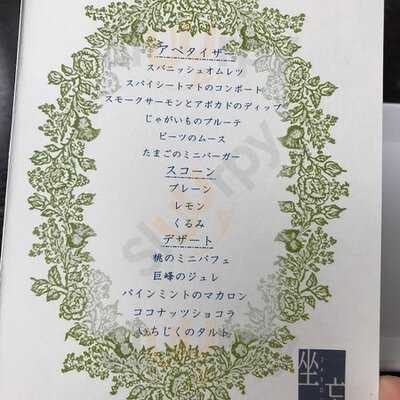 アペタイザー
スパニッシュオムレツ
スパイシートマトのコンポート
スモークサーモンとアボカドのディップ
じゃがいものブルーテ
ビーツのムース
たまごのミニバーガー
スコーン
プレーン
レモン
くるみ
デザート
桃のミニパフェ
巨峰のジュレ
パインミントのマカロン
ココナッツショコラ
いちじくのタルト
坐忘